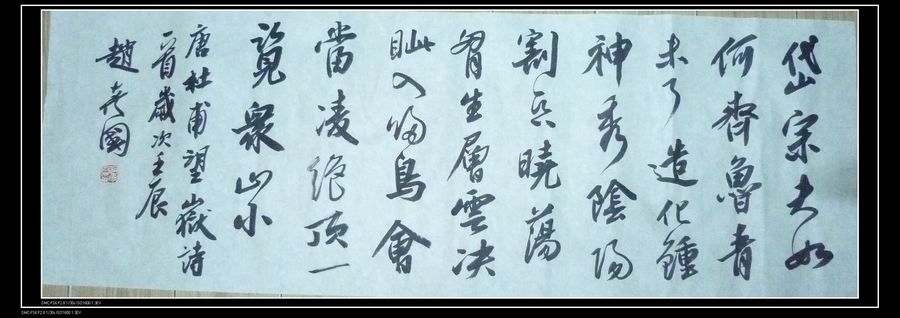 岱宗夫如
何齊魯青
未了造化鍾
神秀陰陽
割昏曉蕩
胷生層雲決
眦入歸鳥會
當凌絕頂一
覽衆山小
唐杜甫望嶽詩
一首歲次壬辰
趙國